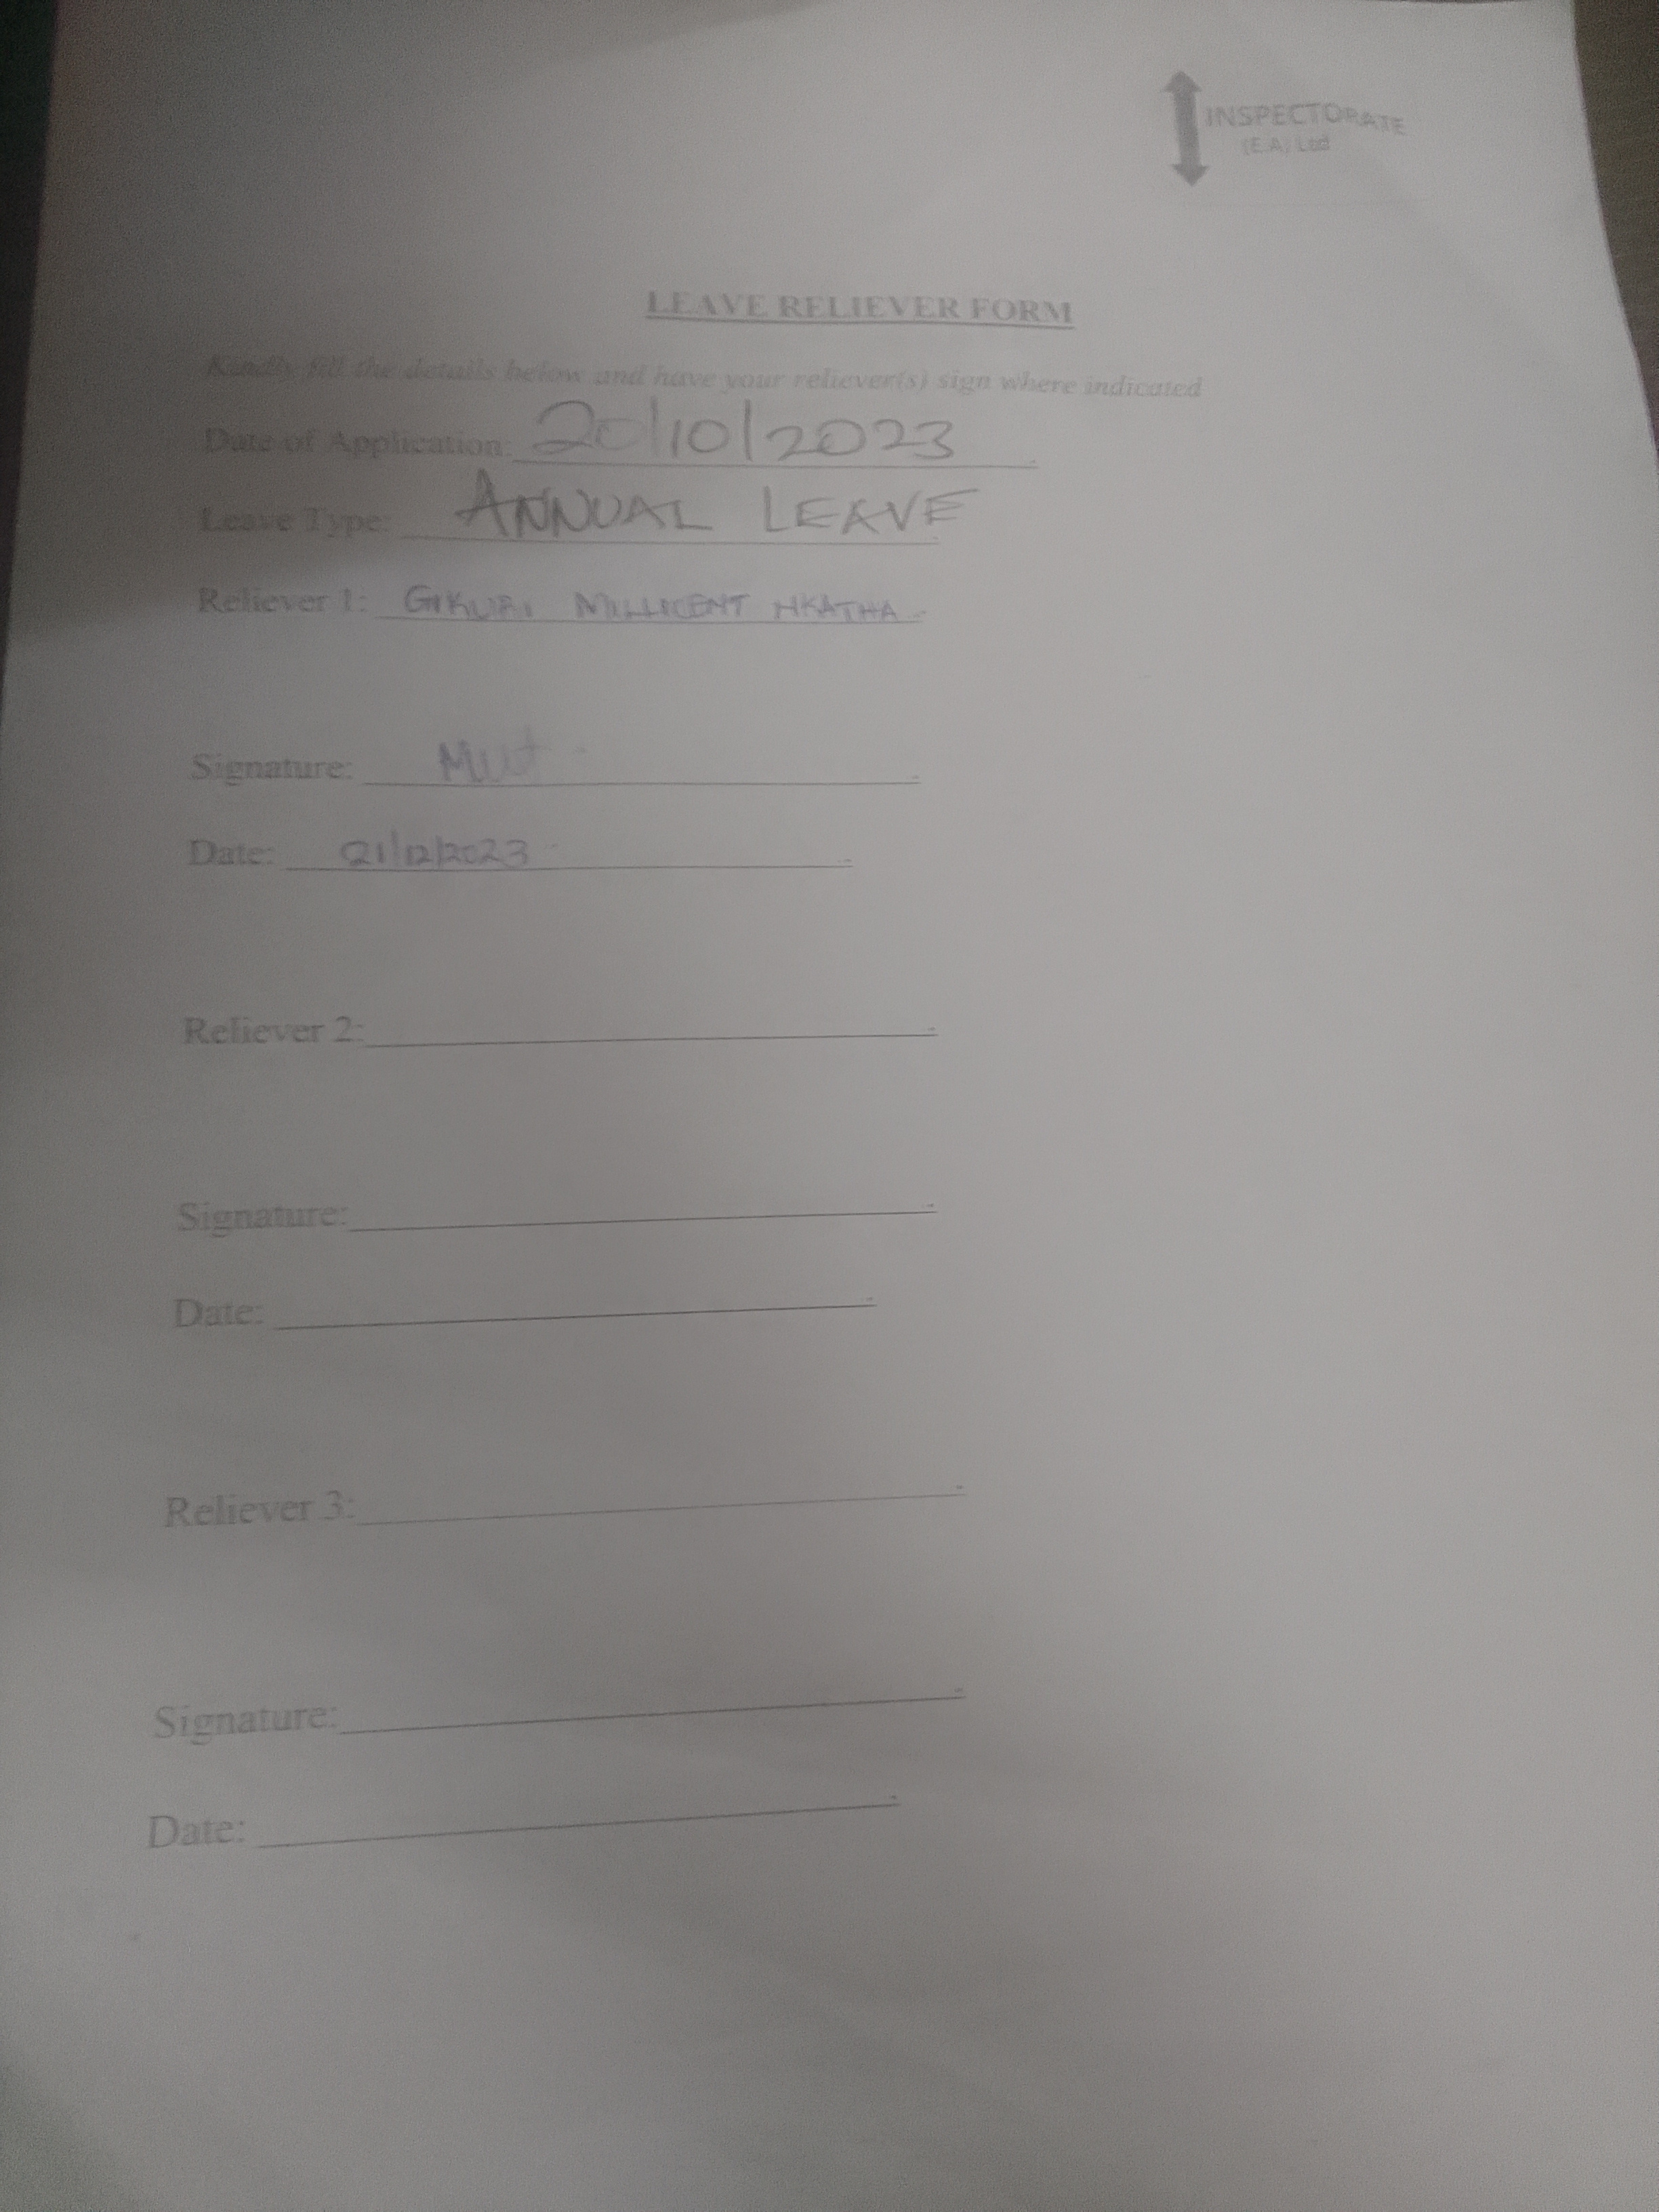 INSPECTORATE
(E.A) Ltd
LEAVE RELIEVER FORM
Kindly fill the details below and have your reliever(s) sign where indicated
Date of Application: 20/10/2023
Leave Type: ANNUAL LEAVE
Reliever 1: MILLICENT NKATHA
Signature:
Date: 21/12/2023
Reliever 2:
Signature:
Date:
Reliever 3:
Signature:
Date: